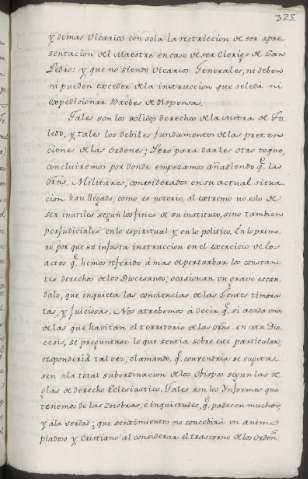 325
y demas Vicarios con sola la restriccion de ser apre-
sentacion del Maestre en caso de ser Clerigo de San
Pedro: y que no siendo Vicarios Generales, ni deben
ni pueden exceder de la instruccion que se les da ni
expedicionar Brebes de dispensas.
Tales son los solidos derechos de la mitra de To-
ledo, y tales los debiles fundamentos de las preten-
ciones de las Ordenes; Pero para darles otro
concluiremos por donde empezamos añadiendo q.e las
Ordns. Militares, consideradas en su actual situa-
cion han llegado, como es notorio, al extremo no solo de
ser inutiles según los fines de su instituto, sino tambien
perjudiciales en lo espiritual y en lo politico. En lo prime-
ro, por que su infausta instruccion en el exercicio de los
actos q.e hemos referido á mas de perturbar los constan-
tes derechos de los Diocesanos; ocasionan un grave escan-
dalo, que inquieta las conciencias de las Gentes timora-
tas, y juiciosas. Nos atrebemos á decir q.e si a cada uno
de los que havitan el territorio de las Ordns. en esta Dio-
cesis, se preguntase lo que sentia sobre este particular;
responderia tal vez, clamando, q.e convendria se supieran
sen ala total subordinacion de los Obispos segun las re-
glas de derecho Eclesiastico. Tales son los Ynformes que
tenemos de las zozobras, e inquietudes, q.e padecen muchos;
y ala verdad; que sentimiento no concebirá un animo
piadoso y Cristiano al considerar el trastorno de los Ordns.